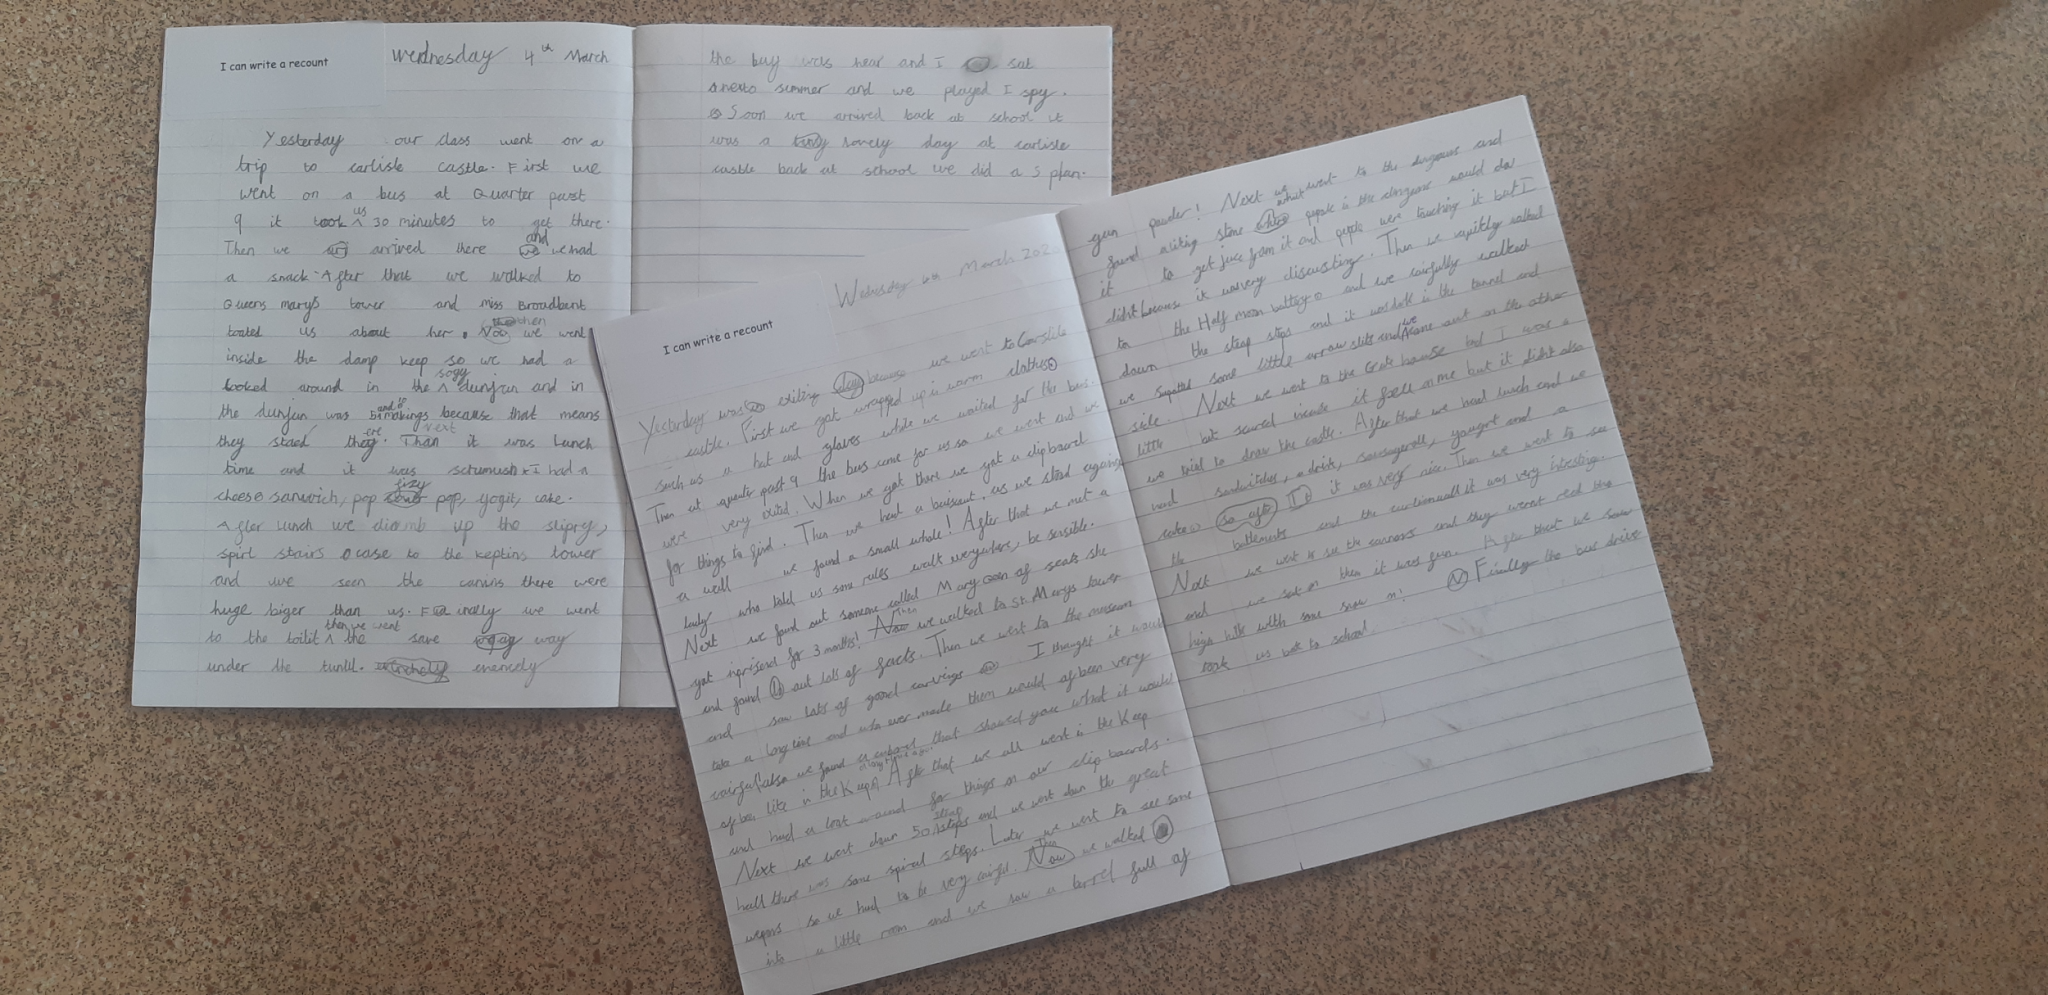 I can write a recount
Wednesday 4th March
Yesterday our class went on a
trip to carlisle castle. First we
went on a bus at Quarter past
9 it took us 30 minutes to get there.
Then we arrived there and we had
a snack. After that we walked to
Queens marys tower and miss Broadbent
us about her. we went
inside the damp keep so we had a
looked around in the sogy dunjun and in
the dunjun was because that means
they it was lunch
time and it was I had a
cheese sanwich, pop fizy pop, yogit, cake.
After lunch we up the slipry,
spirl stairs case to the keptins tower
and we seen the canins there were
huge biger than us. Finally we went
to the toilit then we went the same way
under the
the buy was hear and I sat
nexto summer and we played I spy.
Soon we arrived back at school it
was a lovely day at carlisle
castle back at school we did a 5 plan.
I can write a recount
March 2020
Yesterday was exiting day because we went to Carslile
castle. First we got wrapped up in warm clothes
such as a hat and gloves while we waited for the bus.
Then at past 9 the bus came for us so we went and we
were very exited. When we got there we got a clipboard
for things to find. Then we had a as we stood against
a wall we found a small whole! After that we met a
lady who told us some rules walk everywhere, be sensible.
Next we found out someone called Mary of she
got for 3 months! Then we walked to St. Marys tower
and found out lots of facts. Then we went to the museum
and saw lots of good carveings I thought it would
take a long time and who ever made them would of been very
also we found that showed you what it would
of been like in the Keep After that we all went in the Keep
and had a look around for things on our clip boards.
Next we went down 50 steps and we went down the great
hall there was some spiral steps. Later we went to see some
so we had to be very Then we walked
into a little room and we saw a barrel full of
gun powder! Next we went to the and
found a stone what people in the would do
it to get juce from it and people were touching it but I
didn't because it was very discusting. Then we walked
to the Half moon battery and we walked
down the steep steps and it was in the tunnel and
we spotted some little arrow slits and we came out on the other
side. Next we went to the Gate house but I was a
little bit scared incase it fell on me but it didn't also
we tried to draw the castle. After that we had lunch and we
had sandwitches, a drink, and a
cake it was very nice. Then we went to see
the battlements and the it was very
Next we went to see the and they
and we sat on then it was fun. After that we saw
hills with some snow on! Finally the bus
took us back to school.